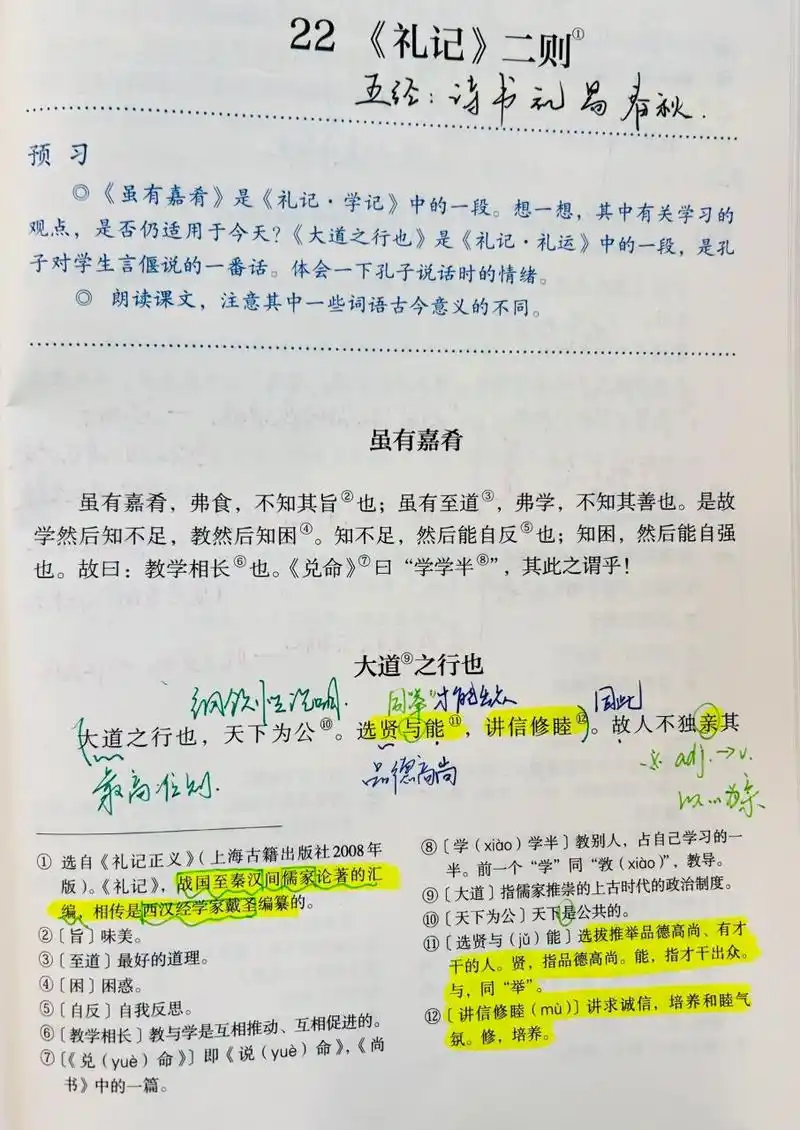 22 《礼记》二则①
五经：诗书礼易春秋.
预 习
◎《虽有嘉肴》是《礼记·学记》中的一段。想一想，其中有关学习的
观点，是否仍适用于今天？《大道之行也》是《礼记·礼运》中的一段，是孔
子对学生言偃说的一番话。体会一下孔子说话时的情绪。
◎ 朗读课文，注意其中一些词语古今意义的不同。
虽有嘉肴
虽有嘉肴，弗食，不知其旨②也；虽有至道③，弗学，不知其善也。是故
学然后知不足，教然后知困④。知不足，然后能自反⑤也；知困，然后能自强
也。故曰：教学相长⑥也。《兑命》⑦曰“学学半⑧”，其此之谓乎！
大道⑨之行也
纲领性说明.
同"举"才能出众
因此
大道之行也，天下为公⑩。选贤与能⑪，讲信修睦⑫。故人不独亲其
最高准则.
品德高尚
adj.→v.
以…为亲
① 选自《礼记正义》（上海古籍出版社2008年
版）。《礼记》，战国至秦汉间儒家论著的汇
编，相传是西汉经学家戴圣编纂的。
②〔旨〕味美。
③〔至道〕最好的道理。
④〔困〕困惑。
⑤〔自反〕自我反思。
⑥〔教学相长〕教与学是互相推动、互相促进的。
⑦〔《兑（yuè）命》〕即《说（yuè）命》，《尚
书》中的一篇。
⑧〔学（xiào）学半〕教别人，占自己学习的一
半。前一个“学”同“敩（xiào）”，教导。
⑨〔大道〕指儒家推崇的上古时代的政治制度。
⑩〔天下为公〕天下是公共的。
⑪〔选贤与（jǔ）能〕选拔推举品德高尚、有才
干的人。贤，指品德高尚。能，指才干出众。
与，同“举”。
⑫〔讲信修睦（mù）〕讲求诚信，培养和睦气
氛。修，培养。